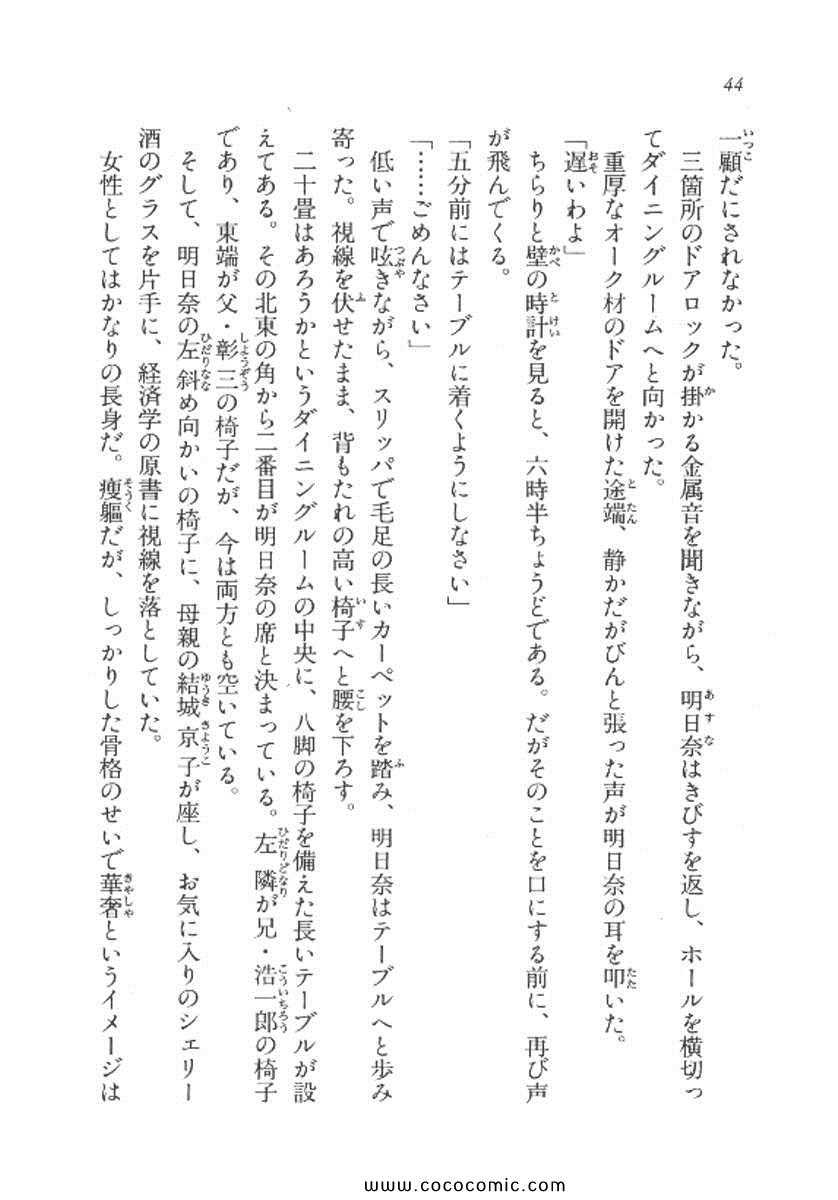 44
一顧だにされなかった。
三箇所のドアロックが掛かる金属音を聞きながら、明日奈はきびすを返し、ホールを横切っ
てダイニングルームへと向かった。
重厚なオーク材のドアを開けた途端、静かだがびんと張った声が明日奈の耳を叩いた。
「遅いわよ」
ちらりと壁の時計を見ると、六時半ちょうどである。だがそのことを口にする前に、再び声
が飛んでくる。
「五分前にはテーブルに着くようにしなさい」
「……ごめんなさい」
低い声で呟きながら、スリッパで毛足の長いカーペットを踏み、明日奈はテーブルへと歩み
寄った。視線を伏せたまま、背もたれの高い椅子へと腰を下ろす。
二十畳はあろうかというダイニングルームの中央に、八脚の椅子を備えた長いテーブルが設
えてある。その北東の角から二番目が明日奈の席と決まっている。左隣が兄・浩一郎の椅子
であり、東端が父・彰三の椅子だが、今は両方とも空いている。
そして、明日奈の左斜め向かいの椅子に、母親の結城京子が座し、お気に入りのシェリー
酒のグラスを片手に、経済学の原書に視線を落としていた。
女性としてはかなりの長身だ。痩軀だが、しっかりした骨格のせいで華奢というイメージは
www.cococomic.com